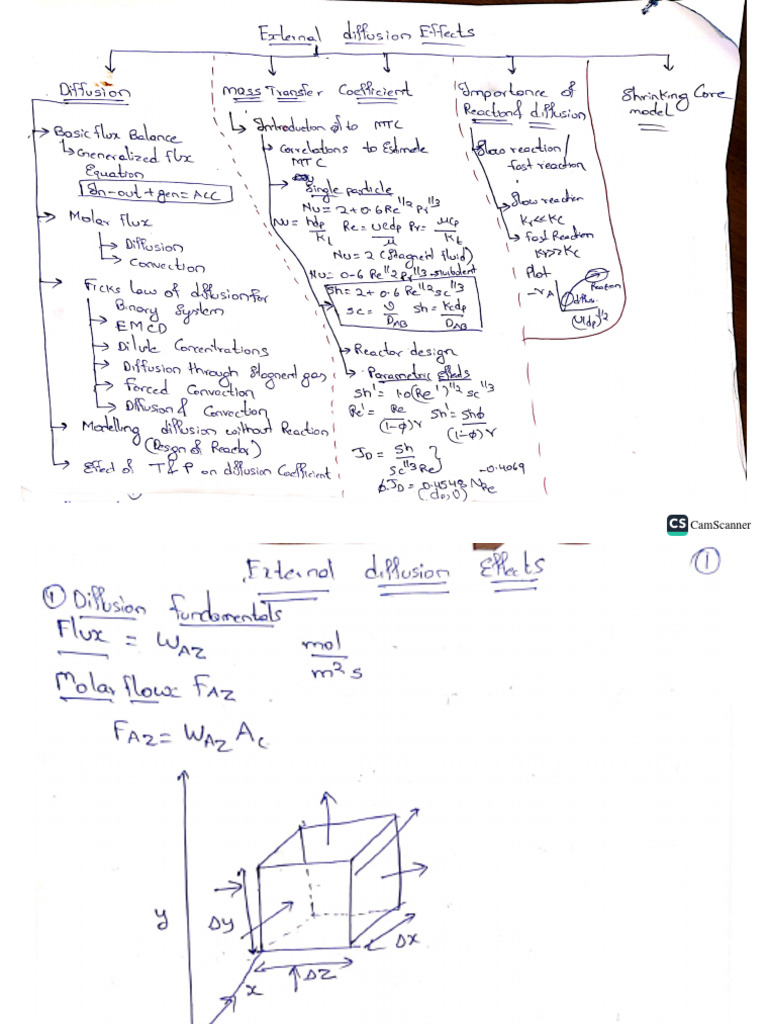 External diffusion Effects
Diffusion
→ Basic flux Balance
↳ Generalized flux
Equation
In-out + gen = Acc
→ Molar flux
→ Diffusion
→ Convection
→ Ficks Law of diffusion for
Binary System
→ EMCD
→ Dilute Concentrations
→ Diffusion through Stagnent gas
→ Forced Convection
→ Diffusion & Convection
→ Modelling diffusion without Reaction
(Design of Reactor)
→ Effect of T & P on diffusion Coefficient
Mass Transfer Coefficient
↳ Introduction to MTC
→ Correlations to Estimate
MTC
→ Single particle
Nu = 2 + 0.6 Re^1/2 Pr^1/3
Nu = hdp/kt Re = Uρdp/μ Pr = μCp/kt
Nu = 2 (Stagnent fluid)
Nu = 0.6 Re^1/2 Pr^1/3 - turbulent
Sh = 2 + 0.6 Re^1/2 Sc^1/3
Sc = υ/D_AB Sh = kcdp/D_AB
→ Reactor design
→ Parametric Effects
Sh' = 1.0 (Re')^1/2 Sc^1/3
Re' = Re/(1-φ)γ Sh' = Shφ/(1-φ)γ
J_D = Sh/Sc^1/3 Re
φ J_D = 0.4548 N_Re^-0.4069
Importance of
Reaction & diffusion
→ Slow reaction/
fast reaction
→ Slow reaction
Kr<<Kc
→ Fast Reaction
Kr>>Kc
Plot
-r_A
Reaction
diffus.
(U/dp)^1/2
Shrinking Core
model
CS CamScanner
External diffusion Effects
①
① Diffusion fundamentals
Flux = W_AZ mol/m²s
Molar flow: F_AZ
F_AZ = W_AZ A_c
y
Δy
Δx
ΔZ
x